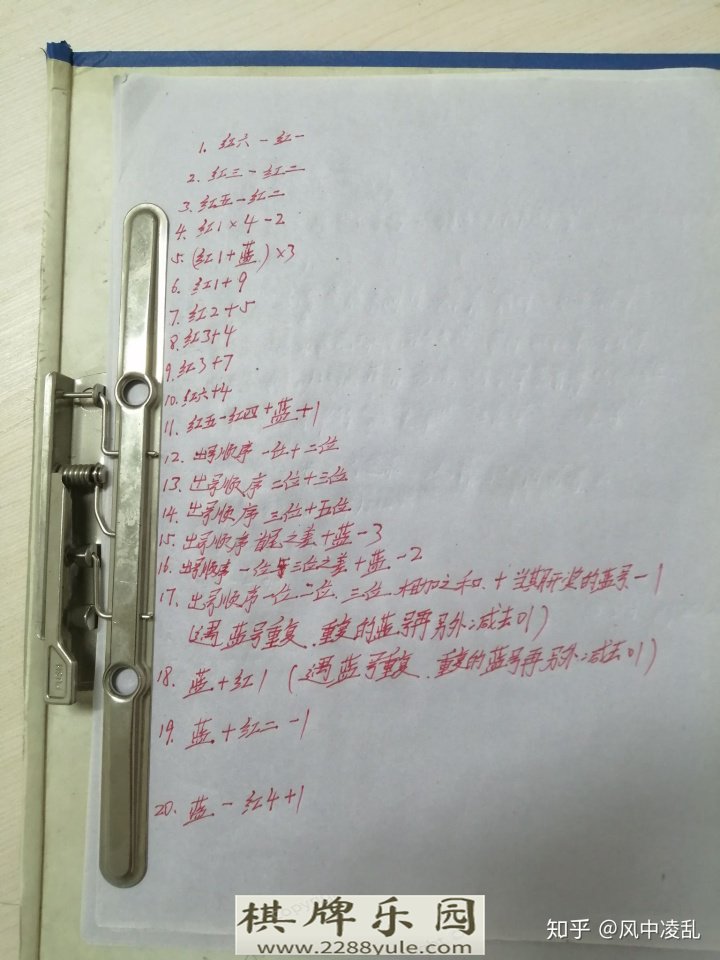 1. 红六-红一
2. 红三-红二
3. 红五-红二
4. 红1×4-2
5. (红1+蓝)×3
6. 红1+9
7. 红2+5
8. 红3+4
9. 红3+7
10. 红六+4
11. 红五-红四+蓝+1
12. 出号顺序 一位+二位
13. 出号顺序 二位+三位
14. 出号顺序 三位+五位
15. 出号顺序 首尾之差+蓝-3
16. 出号顺序 一位与三位之差+蓝-2
17. 出号顺序一位、二位、三位 相加之和 + 当期开奖的蓝号-1
(遇蓝号重复、重复的蓝号再另外减去01)
18. 蓝+红1 (遇蓝号重复、重复的蓝号再另外减去01)
19. 蓝+红二-1
20. 蓝-红4+1
棋牌乐园
www.2288yule.com
知乎 @风中凌乱